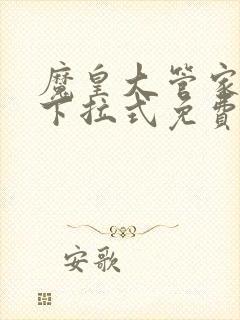 魔皇大管家
下拉式免费
安歌